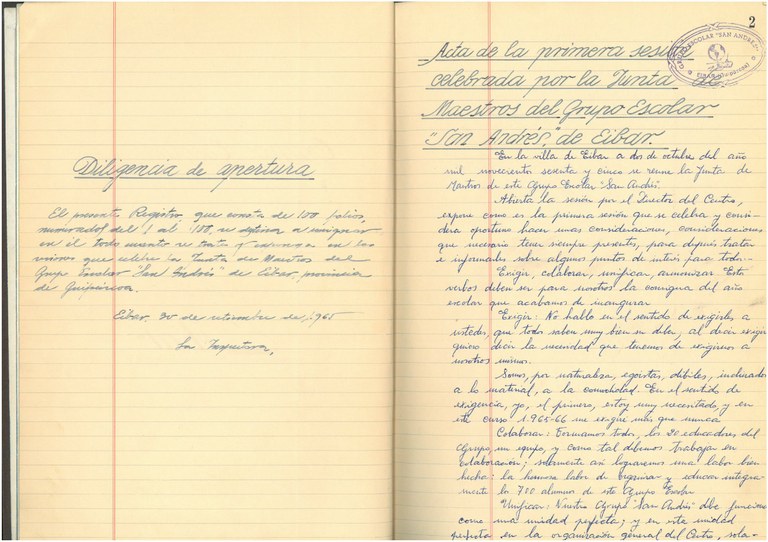 Diligencia de apertura
El presente Registro, que consta de 100 folios,
numerados del 1 al 100, se destina a
en él todo cuanto se trate y en las
que celebre la Junta de Maestros del
Grupo Escolar "San Andrés" de Eibar, provincia
de Guipúzcoa.
Eibar, 30 de de 1.965
La Inspectora,
2
GRUPO ESCOLAR "SAN ANDRES"
EIBAR (Guipúzcoa)
Acta de la primera sesión
celebrada por la Junta de
Maestros del Grupo Escolar
"San Andrés", de Eibar.
En la villa de Eibar a dos de octubre del año
mil novecientos sesenta y cinco se reune la Junta de
Maestros de este Grupo Escolar "San Andrés".
Abierta la sesión por el Director del Centro,
expone como es la primera sesión que se celebra y consi-
dera oportuno hacer unas consideraciones, consideraciones
que necesario tener siempre presentes, para después tratar
e informarles sobre algunos puntos de interés para todos.
Exigir, colaborar, unificar, armonizar. Estos
verbos deben ser para nosotros la consigna del año
escolar que acabamos de inaugurar.
Exigir: No hablo en el sentido de exigirles a
ustedes, que todos saben muy bien su deber, al decir exigir
quiero decir la necesidad que tenemos de exigirnos a
nosotros mismos.
Somos, por naturaleza, egoistas, débiles, inclinados
a lo material, a la comodidad. En el sentido de
exigencia, yo, el primero, estoy muy necesitado, y en
este curso 1.965-66 me exigiré más que nunca
Colaborar: Formamos todos, los 20 educadores del
Grupo, un equipo, y como tal debemos trabajar en
colaboración; solamente así lograremos una labor bien
hecha: la hermosa labor de organizar y educar integra-
mente los 700 alumnos de este Grupo Escolar
Unificar: Nuestro Grupo "San Andrés" debe funcionar
como una unidad perfecta; y en esta unidad
perfecta en la organización general del Centro, sola-